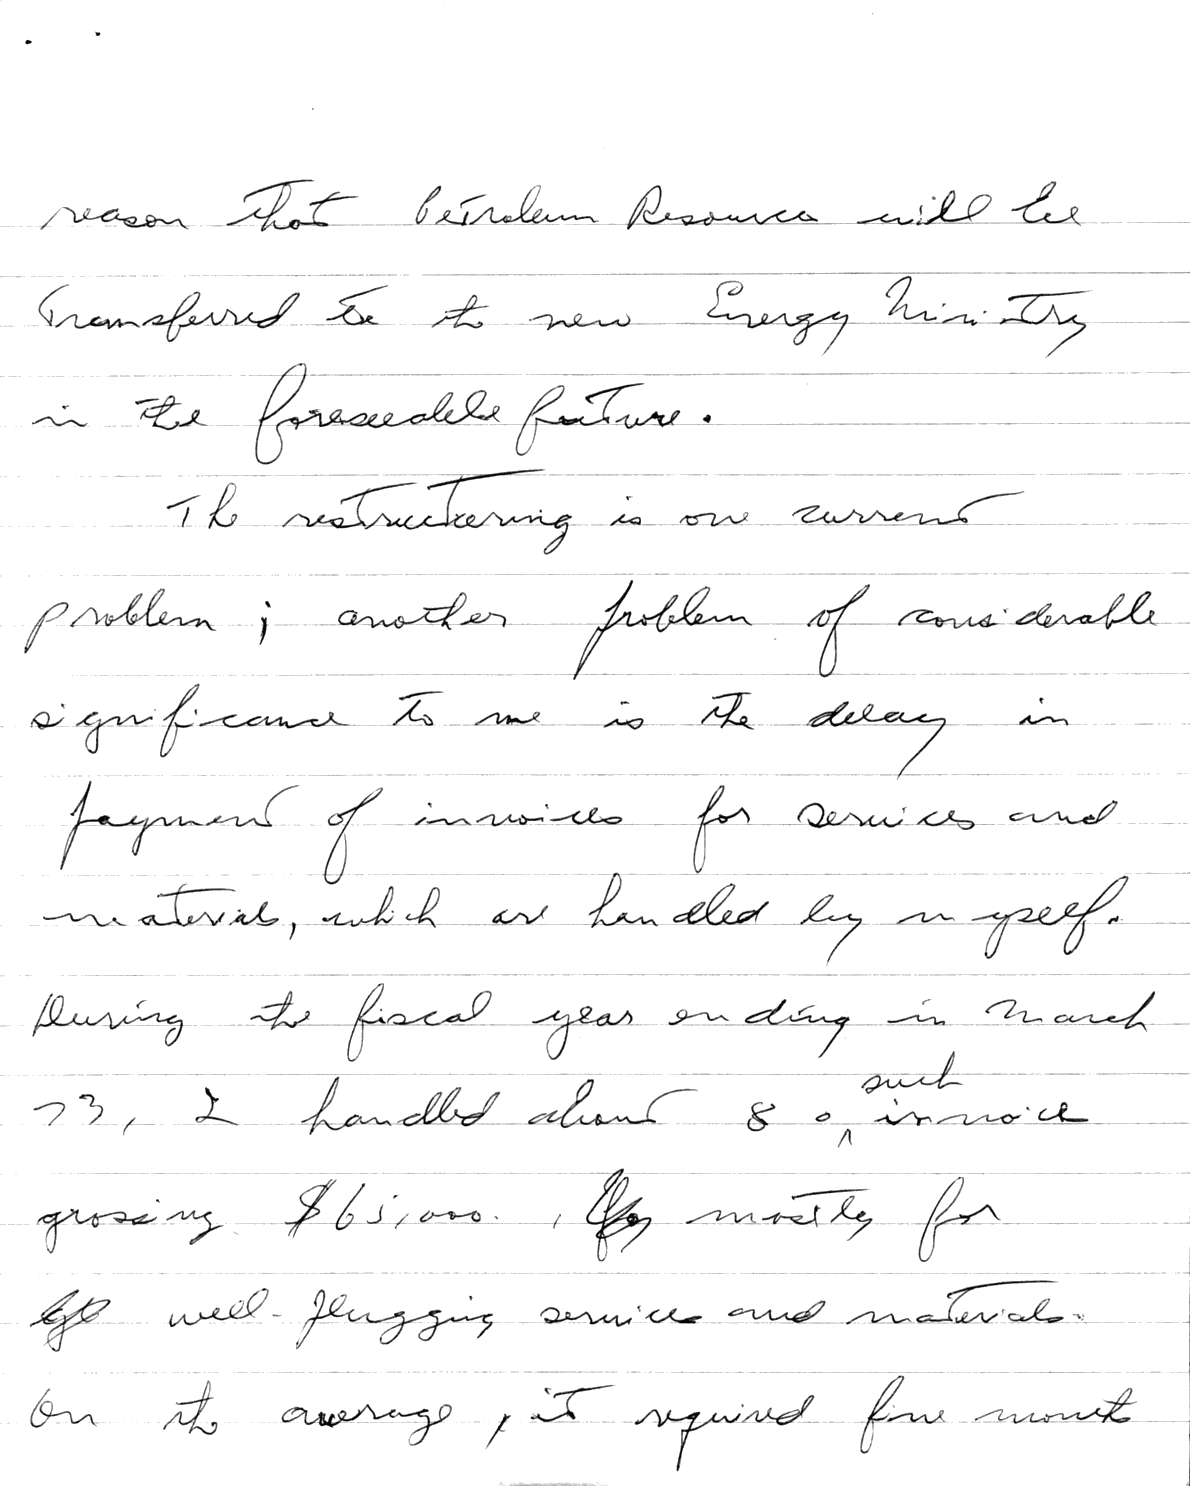 reason that Petroleum Resources will be
transferred to the new Energy Ministry
in the foreseeable future.
The restructuring is one current
problem; another problem of considerable
significance to me is the delay in
payment of invoices for services and
materials, which are handled by myself.
During the fiscal year ending in March
73, I handled about 80 such invoice
grossing $65,000. , mostly for
well-plugging services and materials.
On the average, it required five month